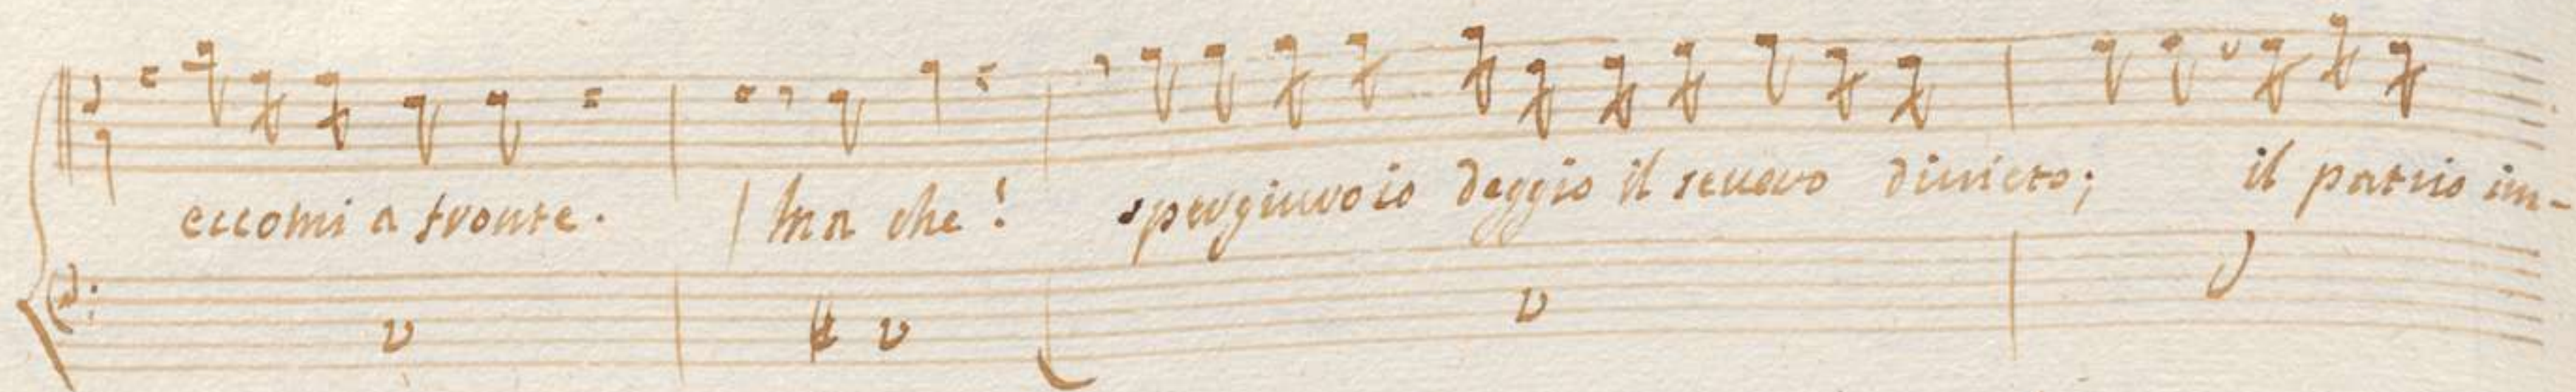 eccomi a fronte. / Ma che! spergiuro io deggio il severo divieto; il patrio im-